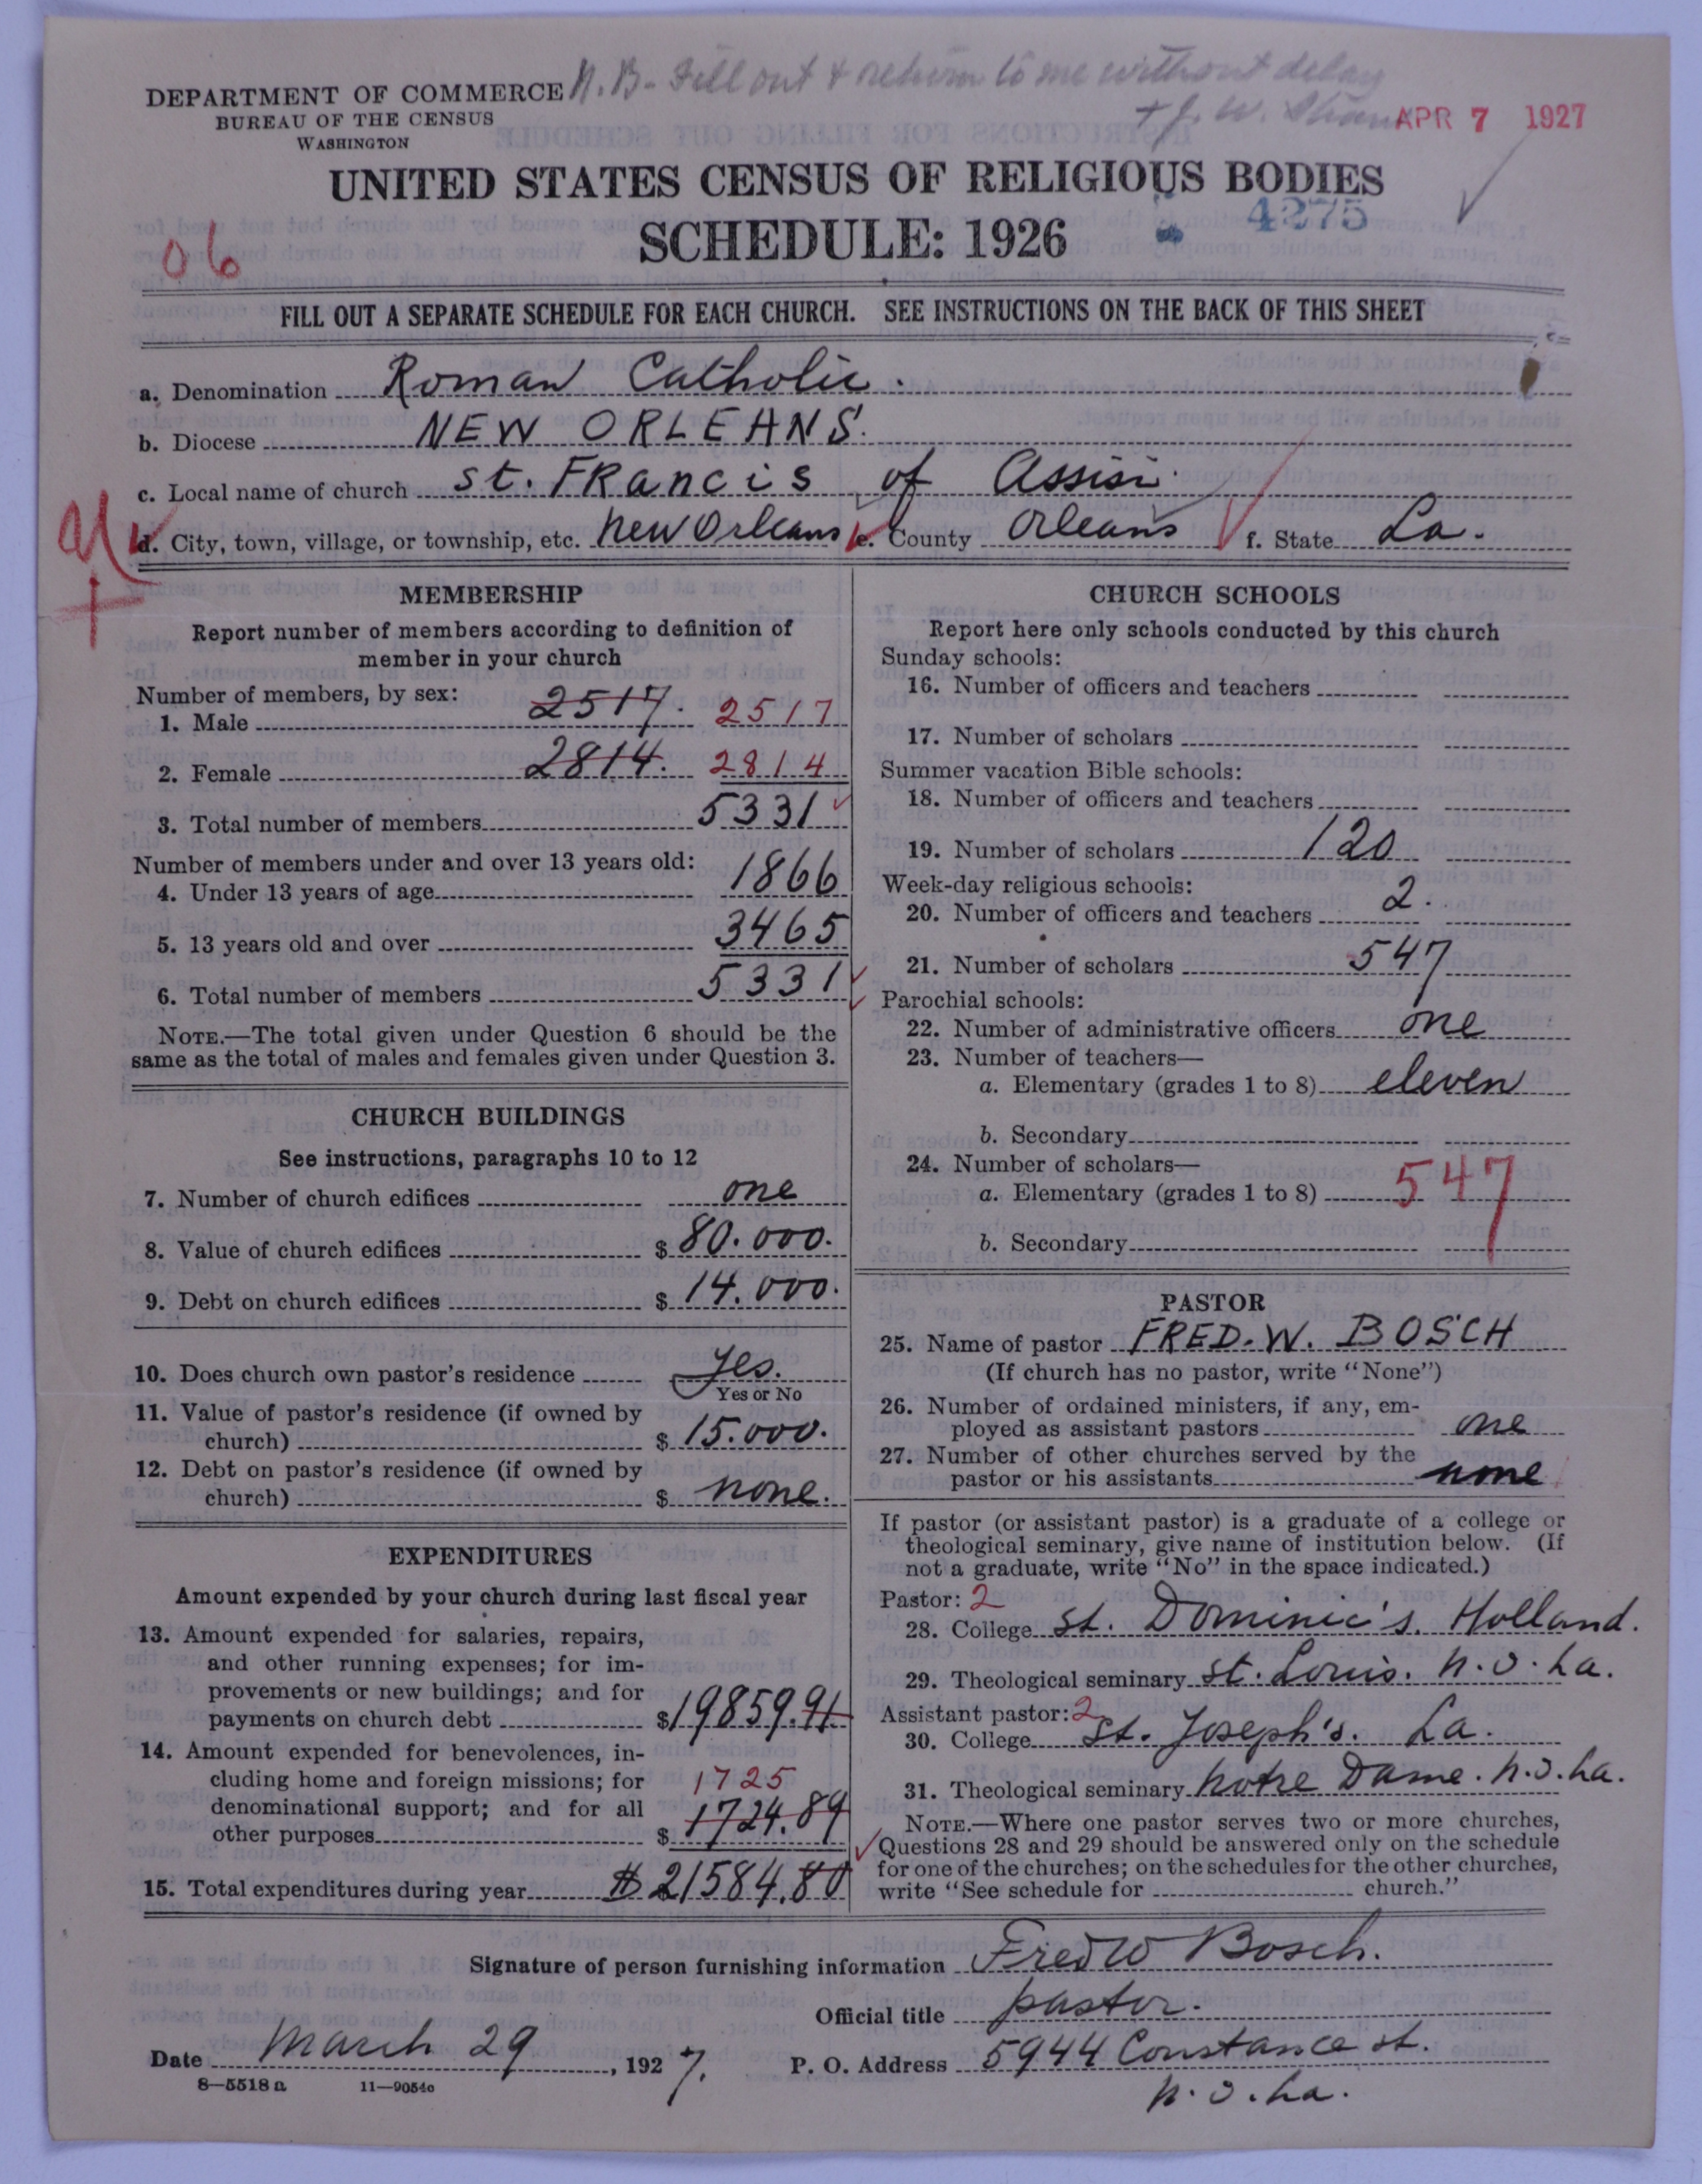 N.B. Fill out & return to me without delay
DEPARTMENT OF COMMERCE
BUREAU OF THE CENSUS
WASHINGTON
+ J. W.
APR 7 1927
UNITED STATES CENSUS OF RELIGIOUS BODIES
SCHEDULE: 1926
4275
06
FILL OUT A SEPARATE SCHEDULE FOR EACH CHURCH. SEE INSTRUCTIONS ON THE BACK OF THIS SHEET
a. Denomination Roman Catholic.
b. Diocese NEW ORLEANS.
c. Local name of church St. FRancis of Assisi.
d. City, town, village, or township, etc. New Orleans e. County Orleans f. State La.
MEMBERSHIP
Report number of members according to definition of
member in your church
Number of members, by sex:
1. Male 2517. 2517
2. Female 2814. 2814
3. Total number of members 5331
Number of members under and over 13 years old:
4. Under 13 years of age 1866
5. 13 years old and over 3465
6. Total number of members 5331
NOTE.—The total given under Question 6 should be the
same as the total of males and females given under Question 3.
CHURCH BUILDINGS
See instructions, paragraphs 10 to 12
7. Number of church edifices one
8. Value of church edifices $ 80.000.
9. Debt on church edifices $ 14.000.
10. Does church own pastor's residence Yes.
Yes or No
11. Value of pastor's residence (if owned by
church) $ 15.000.
12. Debt on pastor's residence (if owned by
church) $ none.
EXPENDITURES
Amount expended by your church during last fiscal year
13. Amount expended for salaries, repairs,
and other running expenses; for im-
provements or new buildings; and for
payments on church debt $ 19859.91
14. Amount expended for benevolences, in-
cluding home and foreign missions; for 1725
denominational support; and for all
other purposes $ 1724.89
15. Total expenditures during year $ 21584.80
CHURCH SCHOOLS
Report here only schools conducted by this church
Sunday schools:
16. Number of officers and teachers
17. Number of scholars
Summer vacation Bible schools:
18. Number of officers and teachers
19. Number of scholars 120
Week-day religious schools:
20. Number of officers and teachers 2.
21. Number of scholars 547
Parochial schools:
22. Number of administrative officers one
23. Number of teachers—
a. Elementary (grades 1 to 8) eleven
b. Secondary
24. Number of scholars—
a. Elementary (grades 1 to 8) 547
b. Secondary
PASTOR
25. Name of pastor FRED. W. BOSCH
(If church has no pastor, write "None")
26. Number of ordained ministers, if any, em-
ployed as assistant pastors one
27. Number of other churches served by the
pastor or his assistants none
If pastor (or assistant pastor) is a graduate of a college or
theological seminary, give name of institution below. (If
not a graduate, write "No" in the space indicated.)
Pastor: 2
28. College St. Dominic's. Holland.
29. Theological seminary St. Louis. N.O. La.
Assistant pastor: 2
30. College St. Joseph's. La.
31. Theological seminary Notre Dame. N.O. La.
NOTE.—Where one pastor serves two or more churches,
Questions 28 and 29 should be answered only on the schedule
for one of the churches; on the schedules for the other churches,
write "See schedule for church."
Signature of person furnishing information Fred W Bosch.
Official title pastor.
Date March 29, 1927. P. O. Address 5944 Constance st.
N.O. La.
8—5518a 11—9054c